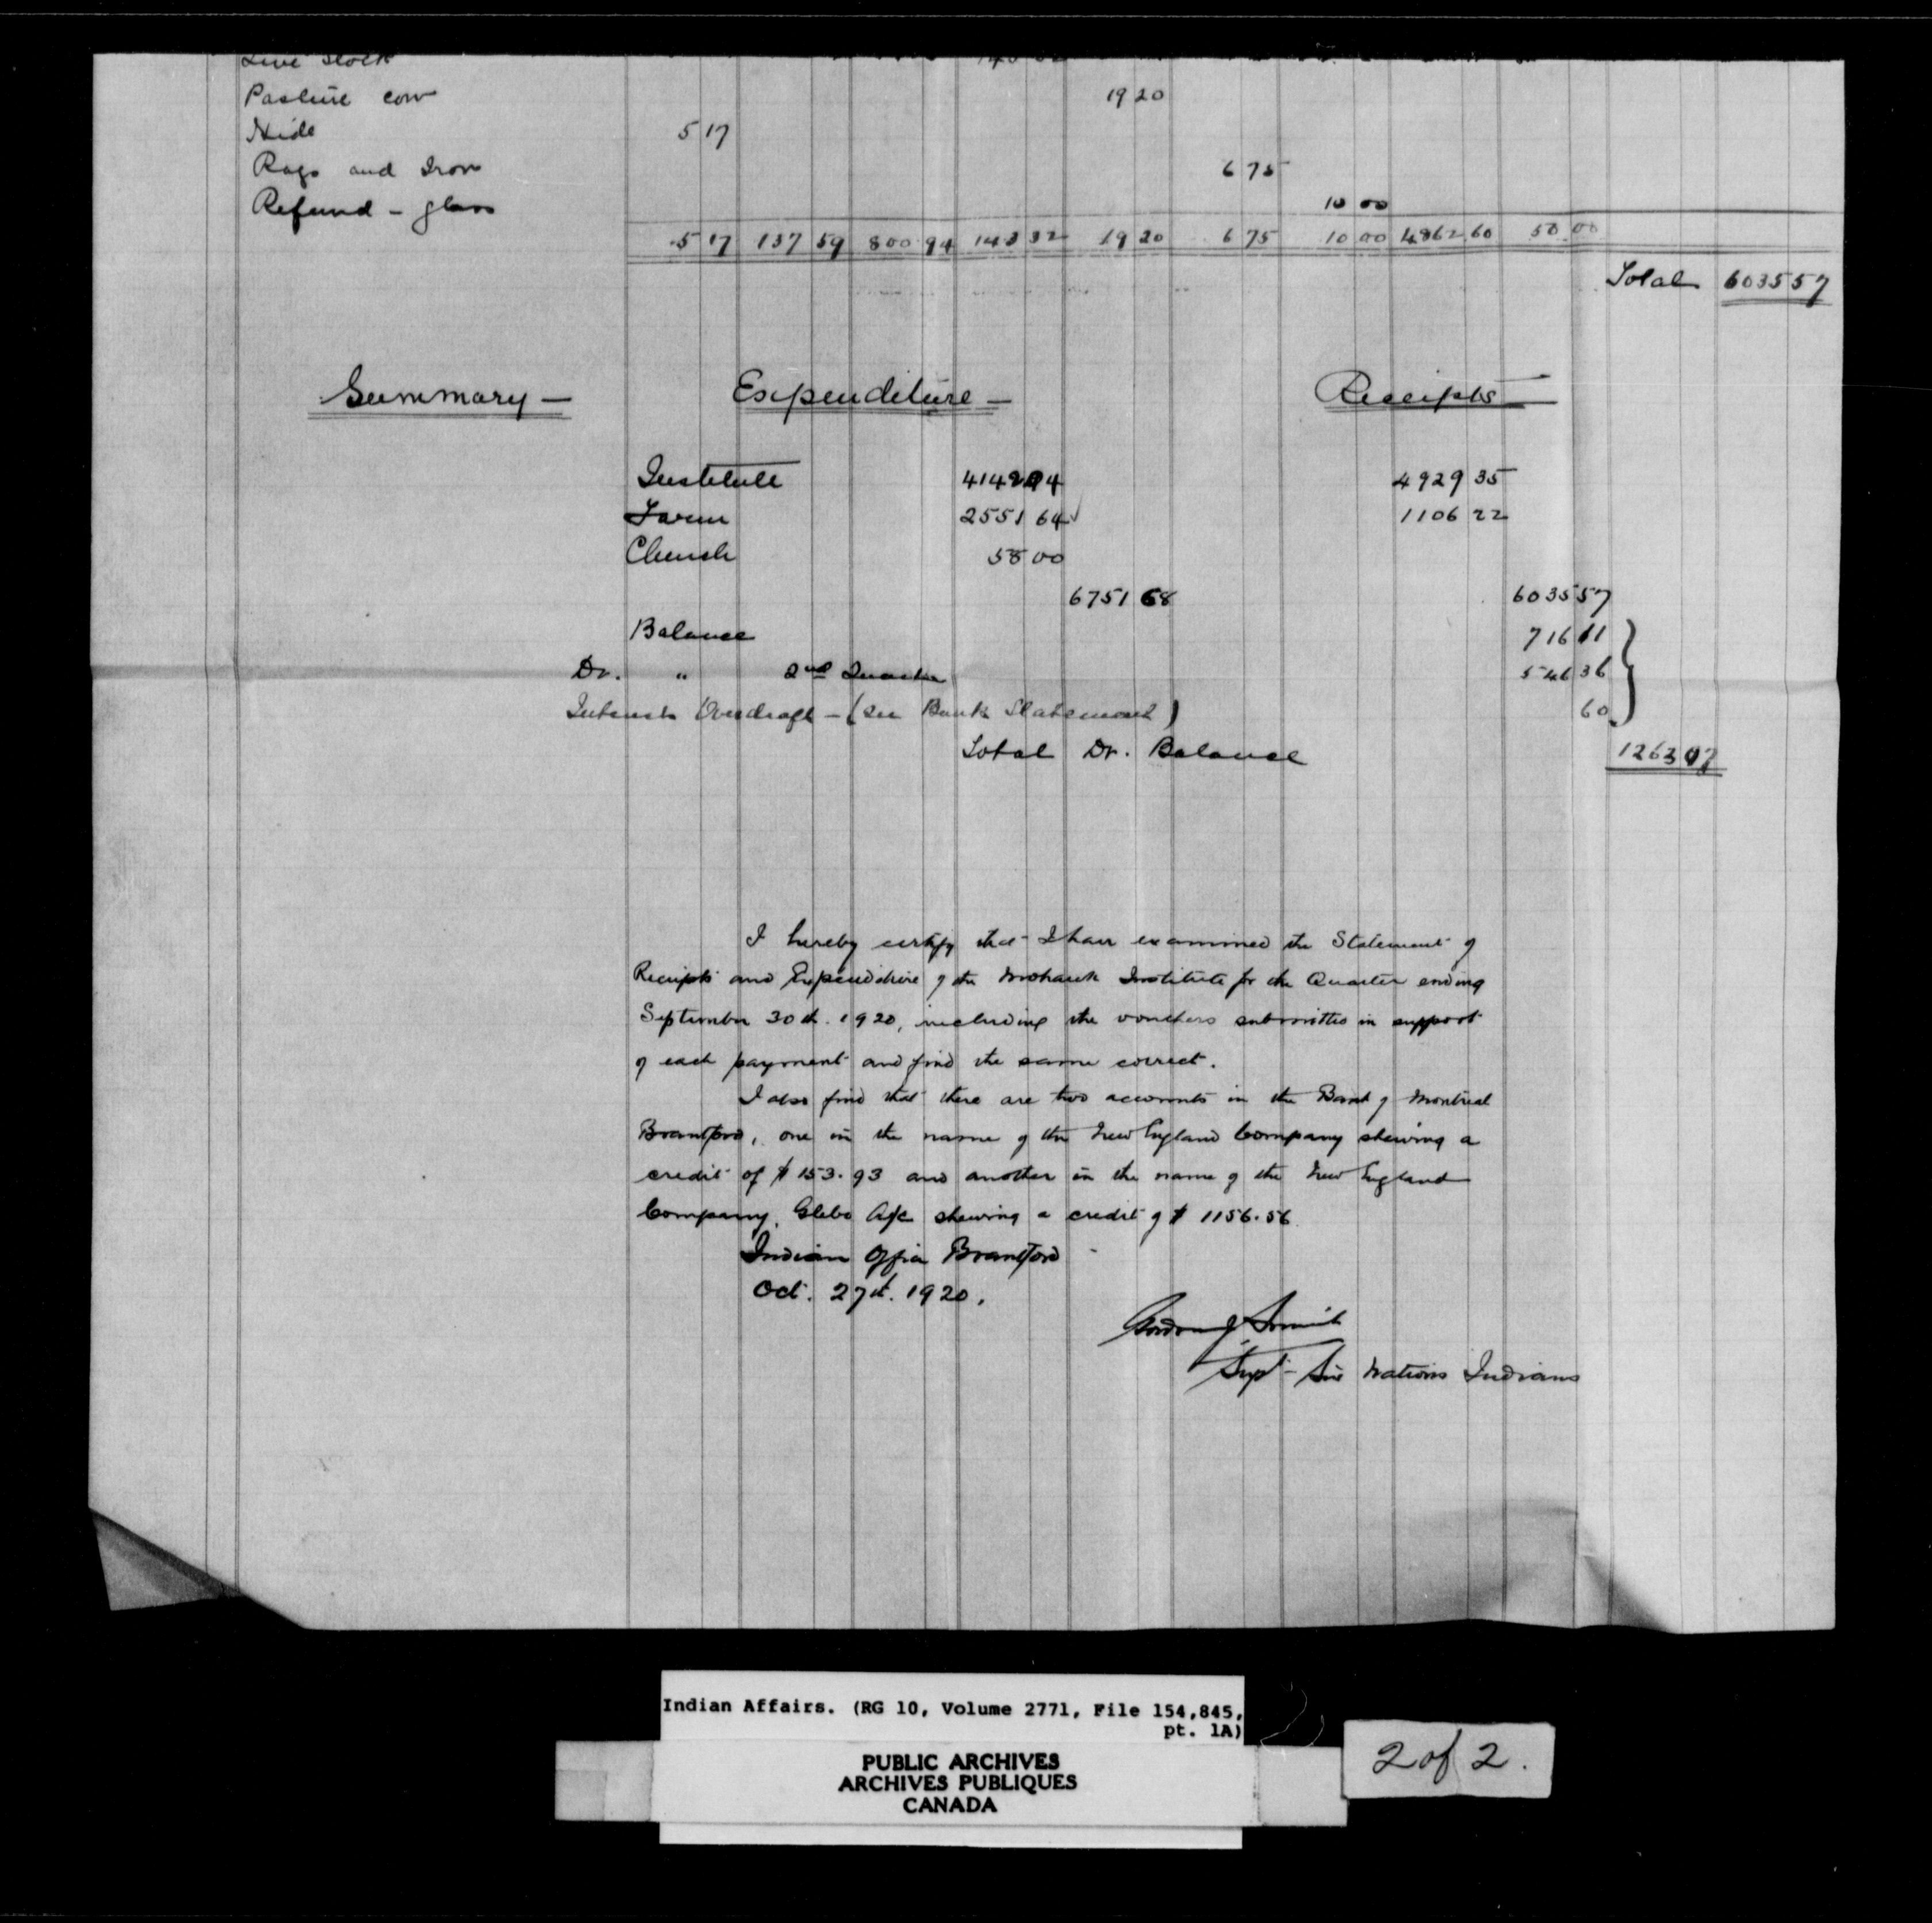 Live Stock
Pasture cow 19 20
Hide 5 17
Rags and Iron 6 75
Refund - glass 10 00
5 17 137 59 800 94 143 32 19 20 6 75 10 00 4862 60 50 00
Total 6035 57
Summary — Expenditure — Receipts —
Institute 4142 04 4929 35
Farm 2551 64 1106 22
Church 58 00
6751 68 6035 57
Balance 716 11
Dr. " 2nd Quarter 546 36
Interest Overdraft - (see Bank Statement) 60
Total Dr. Balance 1263 07
I hereby certify that I have examined the Statement of
Receipts and Expenditure of the Mohawk Institute for the Quarter ending
September 30th. 1920, including the vouchers submitted in support
of each payment and find the same correct.
I also find that there are two accounts in the Bank of Montreal
Brantford, one in the name of the New England Company shewing a
credit of $153.93 and another in the name of the New England
Company, Glebe A/c shewing a credit of $1156.56
Indian Office Brantford
Oct. 27th. 1920.
Gordon J Smith
Supt - Six Nations Indians
Indian Affairs. (RG 10, Volume 2771, File 154,845,
pt. 1A)
PUBLIC ARCHIVES
ARCHIVES PUBLIQUES
CANADA
2 of 2.